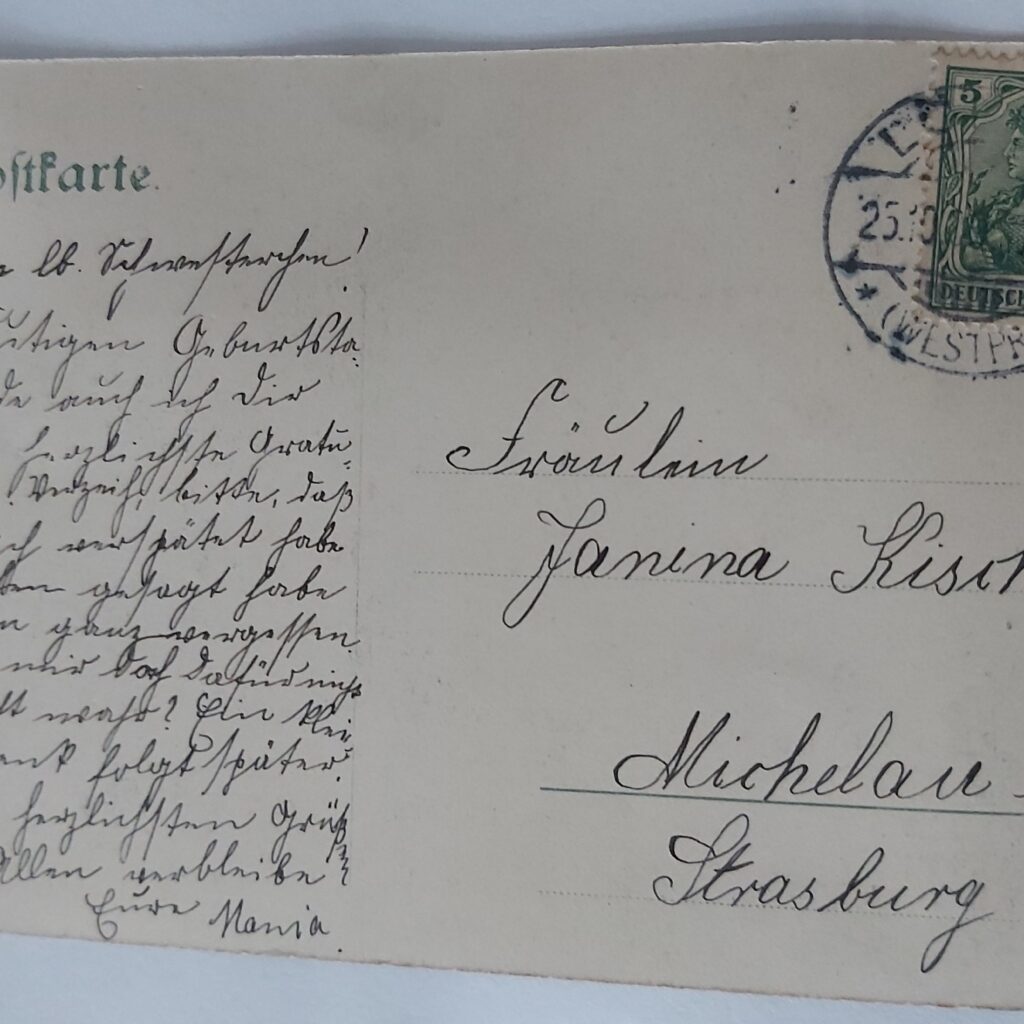 ostkarte.
lb. Schwesterchen!
utigen Geburtsta
de auch ich Dir
herzlichste Gratu-
Verzeih, bitte, daß
ch verspätet habe
ben gesagt habe
n ganz vergessen.
mir doch dafür nicht
ht wahr? Ein klei-
enk folgt später.
herzlichsten Grüß
Allen verbleibe
Eure Mania.
5
25.10.
DEUTSCH
* (WESTPR
Fräulein
Janina Kisch
Michelau
Strasburg